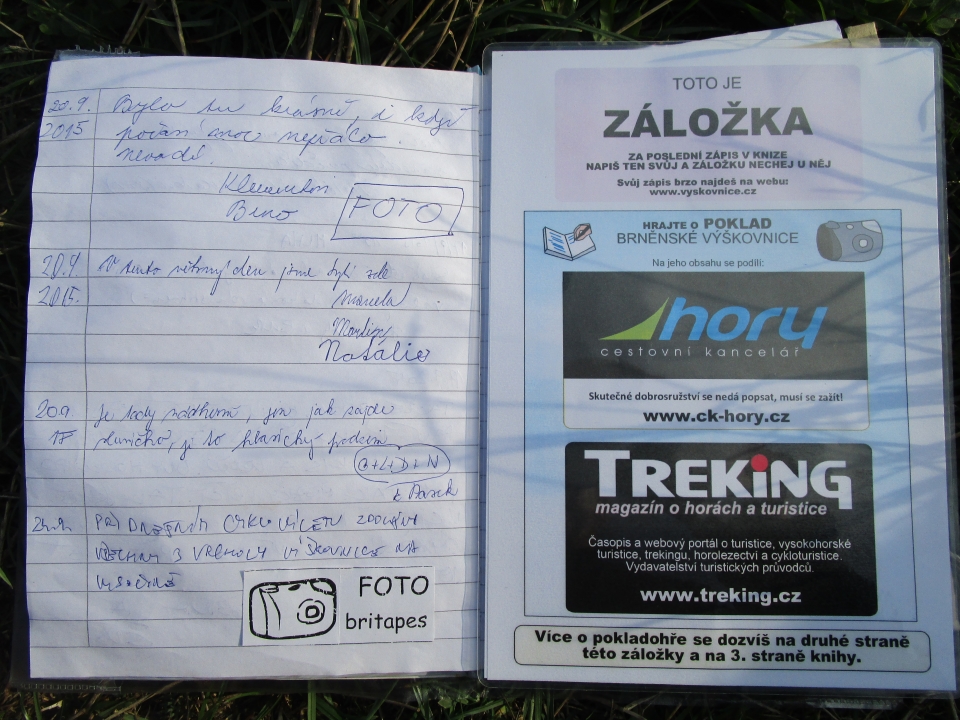 20.9. Bylo tu krásně, i když
2015 počasí moc nepřálo.
nevadí.
Brno
FOTO
20.9 V tento větrný den jsme byli zde
2015. Marcela
Natálie
20.9. Je tady nádherně, jen jak zajde
sluníčko, je to klasický podzim
D + N
PŘI
3 VRCHOLY VÝŠKOVNICE NA
VYSOČINĚ
FOTO
britapes
TOTO JE
ZÁLOŽKA
ZA POSLEDNÍ ZÁPIS V KNIZE
NAPIŠ TEN SVŮJ A ZÁLOŽKU NECHEJ U NĚJ
Svůj zápis brzo najdeš na webu:
www.vyskovnice.cz
HRAJTE O POKLAD
BRNĚNSKÉ VÝŠKOVNICE
Na jeho obsahu se podílí:
hory
cestovní kancelář
Skutečné dobrosružství se nedá popsat, musí se zažít!
www.ck-hory.cz
TREKING
magazín o horách a turistice
Časopis a webový portál o turistice, vysokohorské
turistice, trekingu, horolezectví a cykloturistice.
Vydavatelství turistických průvodců.
www.treking.cz
Více o pokladohře se dozvíš na druhé straně
této záložky a na 3. straně knihy.